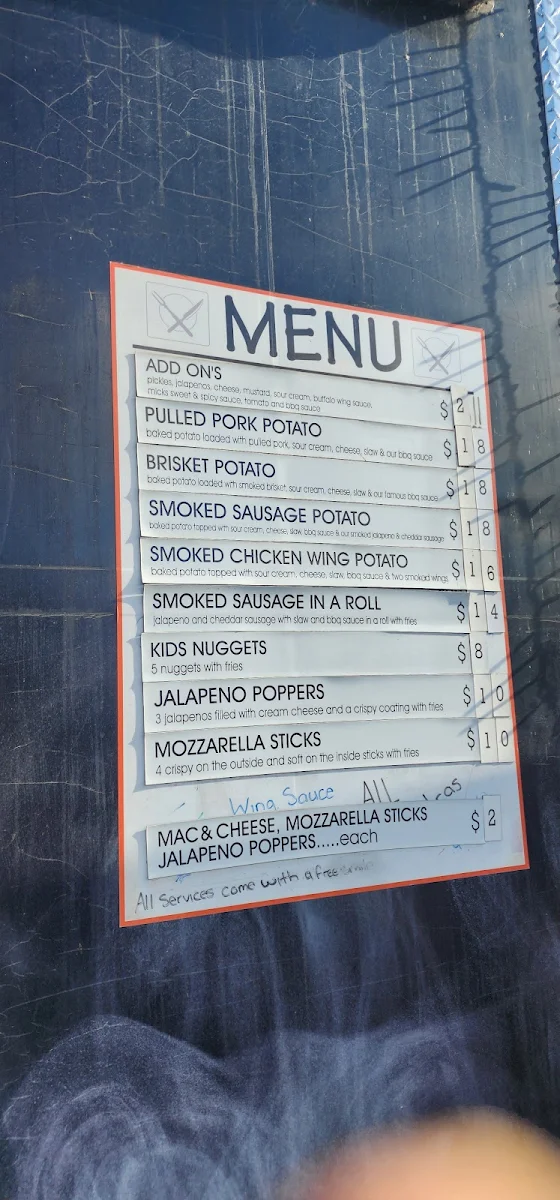 MENU
ADD ON'S
pickles, jalapenos, cheese, mustard, sour cream, buffalo wing sauce,
micks sweet & spicy sauce, tomato and bbq sauce
$ 2
PULLED PORK POTATO
baked potato loaded with pulled pork, sour cream, cheese, slaw & our bbq sauce
$ 1 8
BRISKET POTATO
baked potato loaded with smoked brisket, sour cream, cheese, slaw & our famous bbq sauce
$ 1 8
SMOKED SAUSAGE POTATO
baked potato topped with sour cream, cheese, slaw, bbq sauce & our smoked jalapeno & cheddar sausage
$ 1 8
SMOKED CHICKEN WING POTATO
baked potato topped with sour cream, cheese, slaw, bbq sauce & two smoked wings
$ 1 6
SMOKED SAUSAGE IN A ROLL
jalapeno and cheddar sausage with slaw and bbq sauce in a roll with fries
$ 1 4
KIDS NUGGETS
5 nuggets with fries
$ 8
JALAPENO POPPERS
3 jalapenos filled with cream cheese and a crispy coating with fries
$ 1 0
MOZZARELLA STICKS
4 crispy on the outside and soft on the inside sticks with fries
$ 1 0
Wing Sauce All
MAC & CHEESE, MOZZARELLA STICKS
JALAPENO POPPERS.....each
$ 2
All Services come with a free